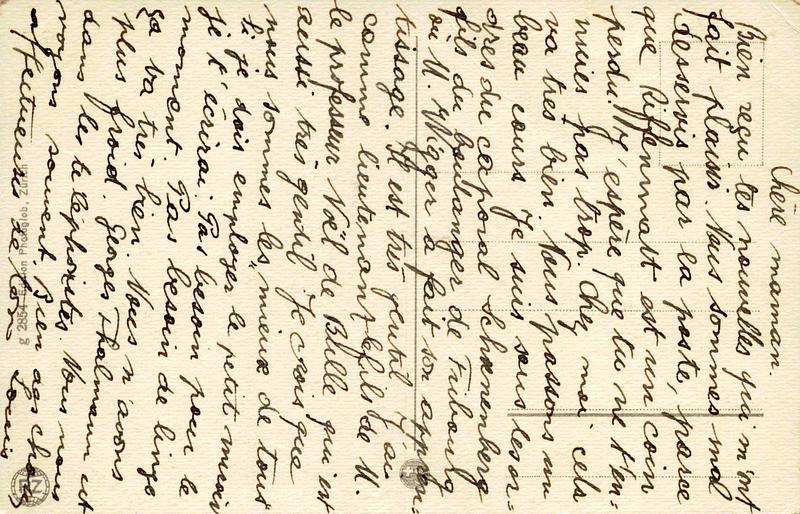 Chère maman.
Bien reçu tes nouvelles qui m'ont
fait plaisir. Nous sommes mal
desservis par la poste, parce
que Riffenmatt est un coin
perdu. J'espère que tu ne t'en-
nuies pas trop. Chez moi cela
va très bien. Nous passons un
beau cours. Je suis sous les or-
dres du caporal Schönenberg
fils du boulanger de Fribourg
où M. Wigger a fait son appren-
tissage. Il est très gentil. J'ai
comme lieutenant le fils de M.
le professeur Noël de Bulle qui est
aussi très gentil. Je crois que
nous sommes les mieux de tous
Si je dois employer le petit
je t'écrirai. Pas besoin pour le
moment. Pas besoin de linge
ça va très bien. Nous n'avons
plus froid. Georges Thalmann est
dans les téléphonistes. Nous nous
voyons souvent. Bien des choses
affectueuses de ton Louis
g 2854 Edition Photoglob, Zürich
PZ